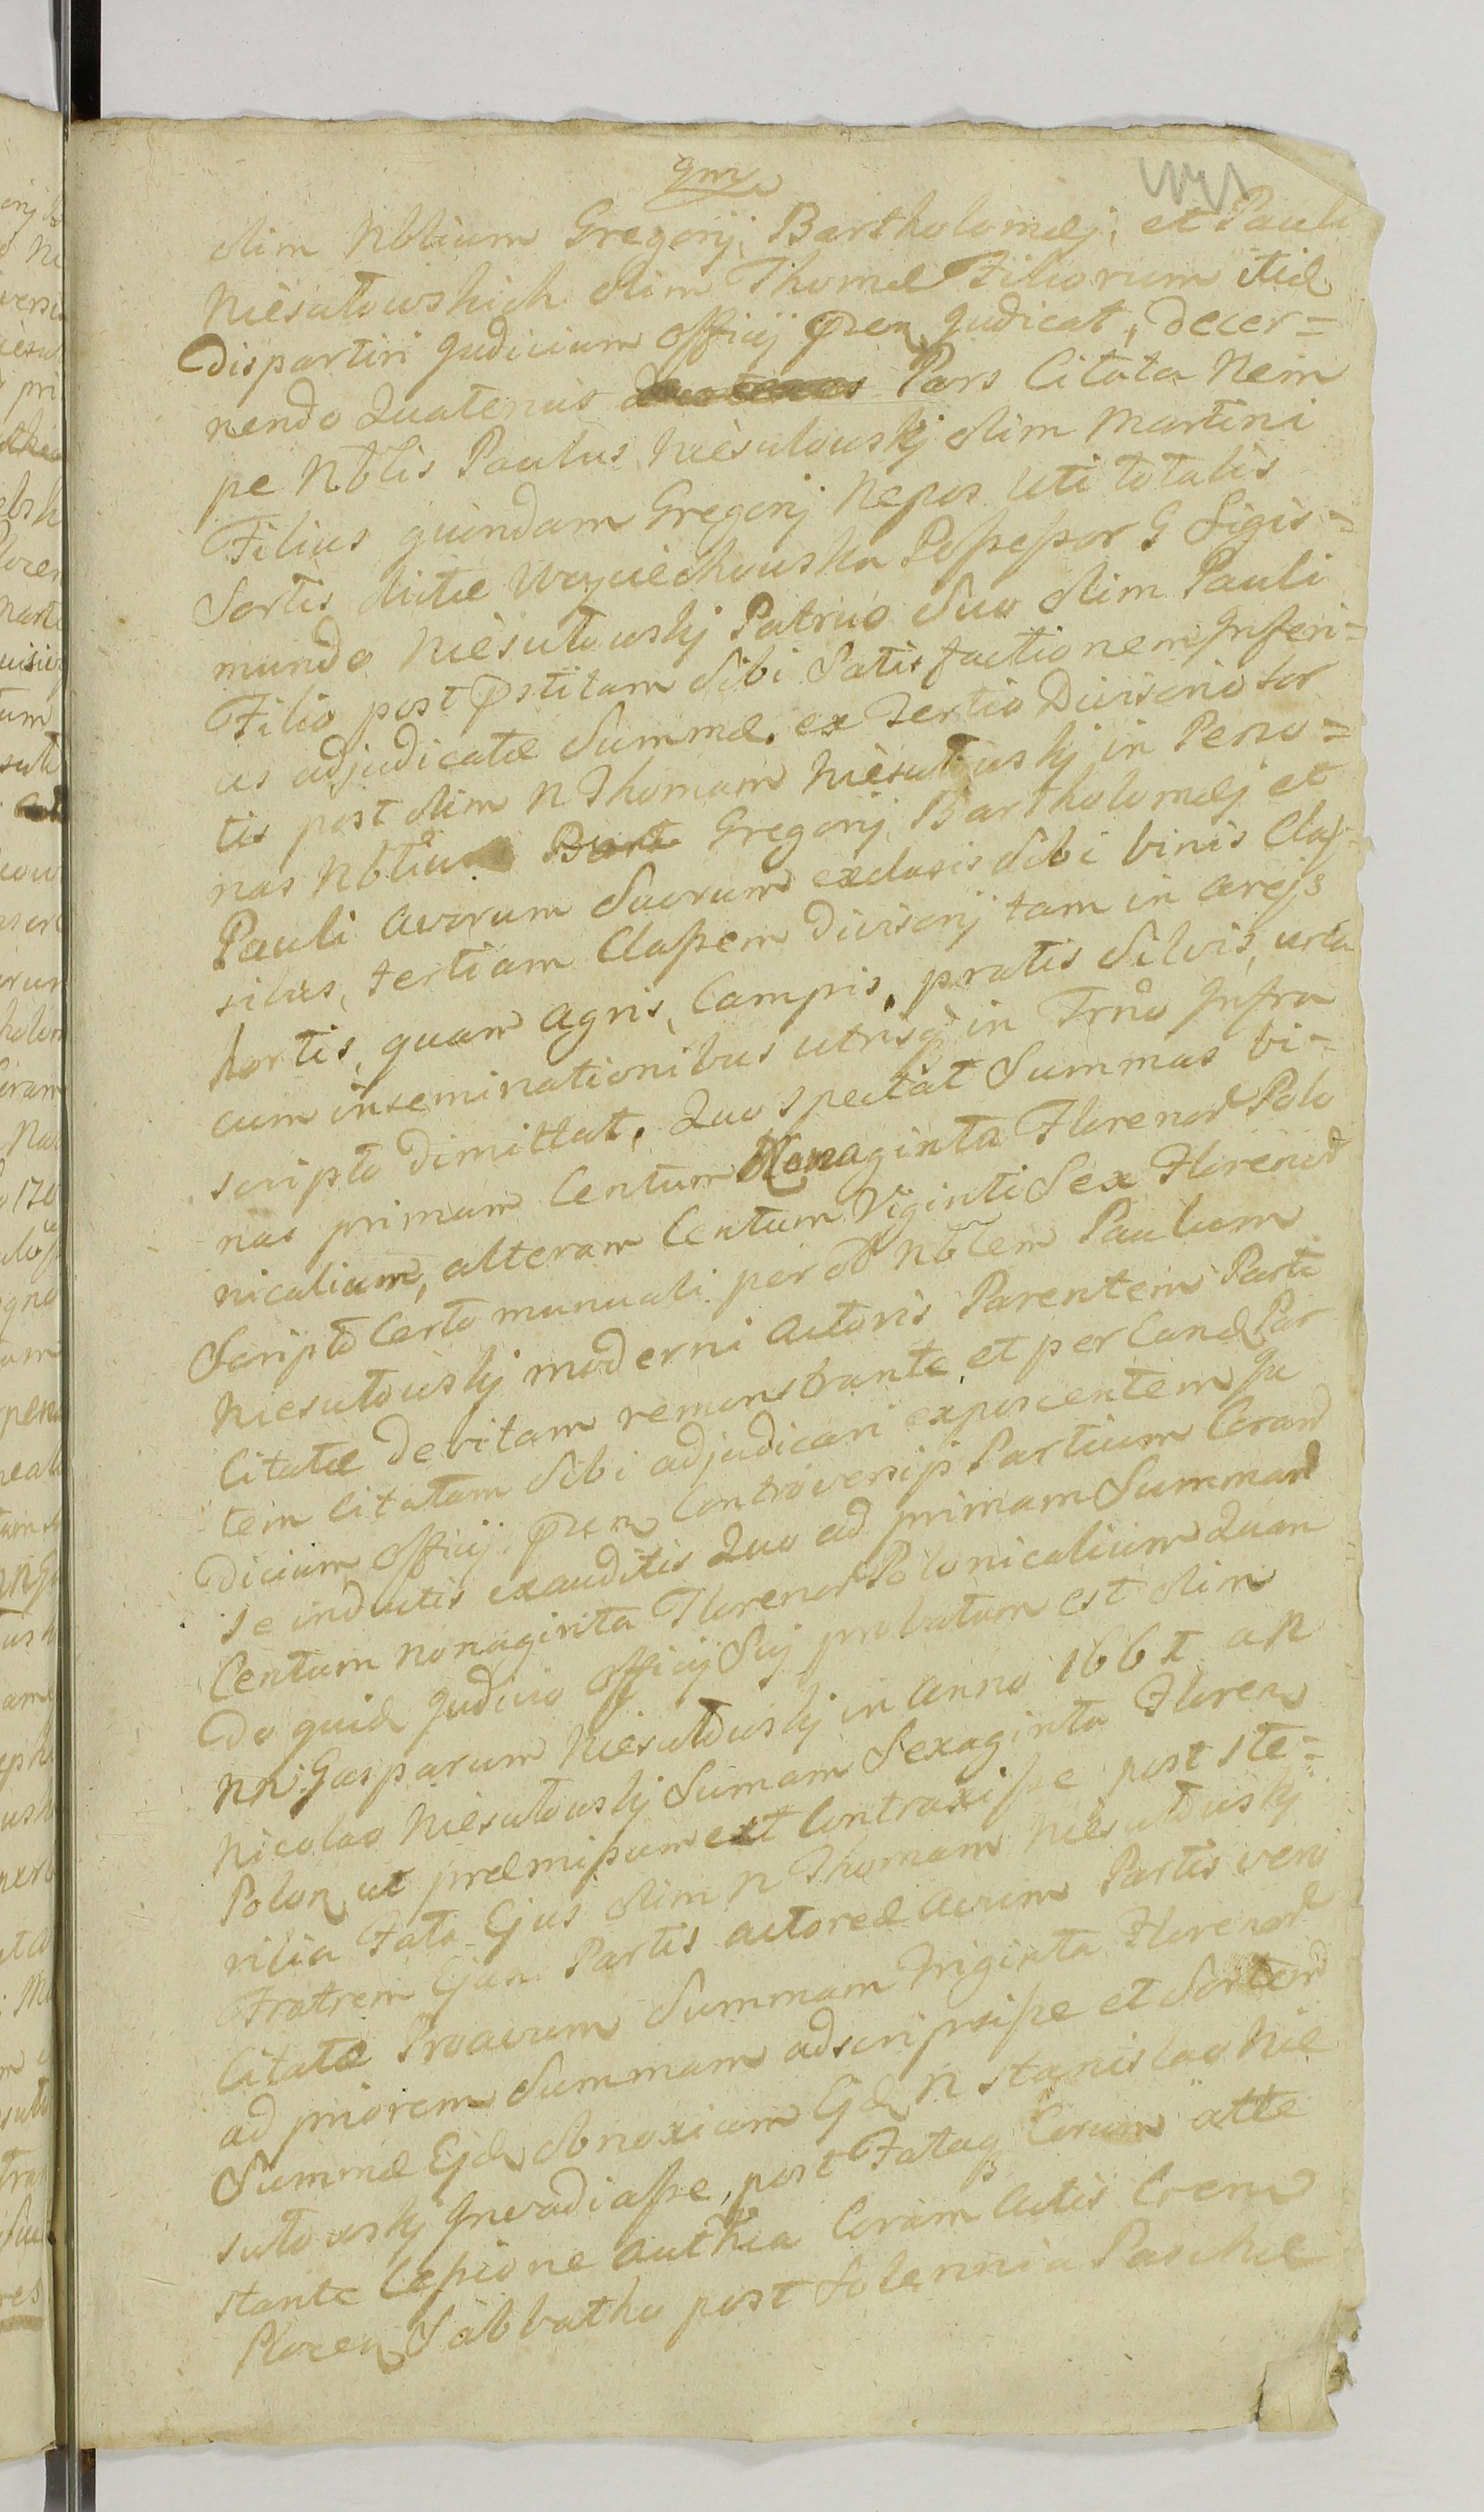 qm
olim Nblium Gregorij, Bartholomæj, et Pauli
Niesułowskich olim Thomæ Filiorum itid
Dispartiri Judicium Officij pñ Judicat, decer=
nendo Quatenus Pars Citata Nem
pe Nblis Paulus Niesułowskj olim Martini
Filius quondam Gregorij Nepos uti totalis
Sortis dictæ Woyciechowska Possessor G Sigis=
mundo Niesułowskj Patruo Suo olim Pauli
Filio post pstitam Sibi Satisfactionem Inferi=
us adjudicatæ Summæ, ex Tertio Divisorio Sor
tis post olim N Thomam Niesułowskj in Perso=
nas Nbliu Gregorij Bartholomæj et
Pauli Avorum Suorum exclusis Sibi binis Clas=
sibus, tertiam Classem Divisorij tam in arejs
hortis, quam agris, Campis, pratis Silvis, una
cum inseminationibus utrisq in Trno Infra
scripto Dimittat, Quo spectat Summas bi=
nas primam Centum Nonaginta Florenor Polo
nicalium, alteram Centum Viginti Sex Florenor
Scripto Certo manuali per olim Nblem Paulum
Niesułowskj moderni Actoris Parentem Parti
Citatæ debitam remonstrante et per eand Par
tem Citatam Sibi adjudicari exposcentem Ju
dicium Officij pñ Controversijs Partium Coram
se inductis exauditis Quo ad primam Summam
Centum nonaginta Florenor Polonicalium Quan
do quid Judicio Officij Sui probatum est olim
NN Gasparum Niesułowskj in Anno 1661 a N
Nicolao Niesułowskj Sumam Sexaginta Floren
Polon ut præmissum est Contraxisse post ste=
rilia Fata Ejus olim N Thomam Niesułowskj
Fratrem Ejusd Partis actoreæ avum Partis vero
Citatæ Proavum Summam Triginta Florenor
ad priorem Summam adscripsisse et Sortem
Summæ Ejd obnoxiam Ejd N Stanislao Nie
sułowskj Invadiasse, post Fataq Eorum atte
stante Cessione authea Coram Actis Crem
Plocen Sabbatho post Solennia Paschæ